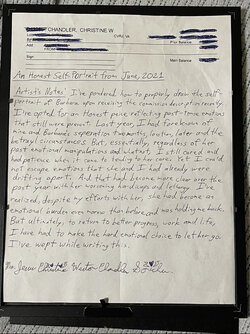 CHANDLER, CHRISTINE W
CVRJ, VA
Prior Balance
Add
FROM
Sign:
Main Balance
An Honest Self-Portrait from June, 2021
Artist's Notes: I've pondered how to properly draw the self-
portrait of Barbara upon receiving the commission description recently.
I've opted for an Honest piece, reflecting past-tense emotions
that still were present. As of June, I had foreknown of
mine and Barbara's seperation two months, later and the
betrayl circumstances. But, essentially, regardless of her
past emotional manipulation and vulanty, I still cared and
had patience when it came to tending to her care. Yet I could
not escape emotions that she and I had already were
drifting apart. And that had become more clear over the
past year with her worsening handicaps and lethargy. I've
realized, despite my efforts with her, she had become an
emotional burden even moreso than before, and was holding me back.
But ultimately, to return to better progress, work and life,
I have had to make the hard emotional choice to let her go.
I've wept while writing this.
Christine Weston Chandler